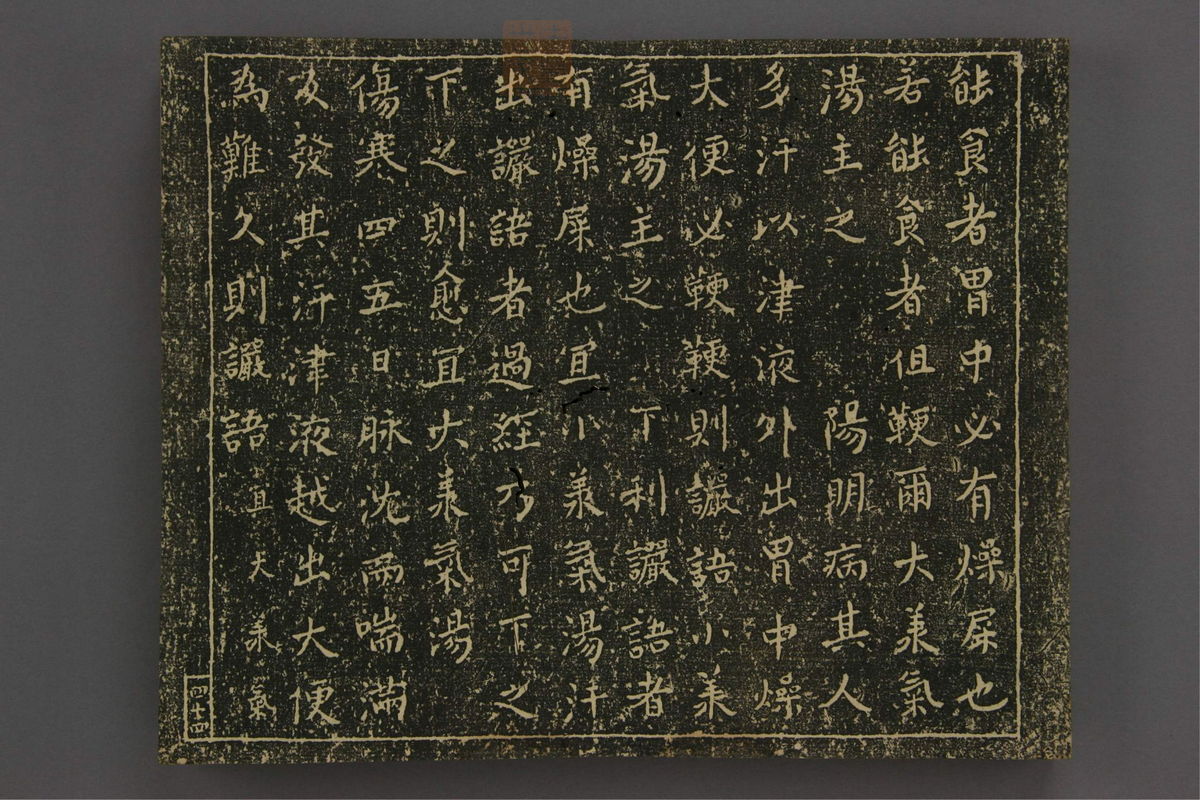 能食者胃中必有燥屎也
若能食者但鞕爾大承氣
湯主之　陽明病其人
多汗以津液外出胃中燥
大便必鞕鞕則讝語小承
氣湯主之　下利讝語者
有燥屎也宜小承氣湯汗
出讝語者過經乃可下之
下之則愈宜大承氣湯
傷寒四五日脉沈而喘滿
反發其汗津液越出大便
為難久則讝語宜大承氣
四十四